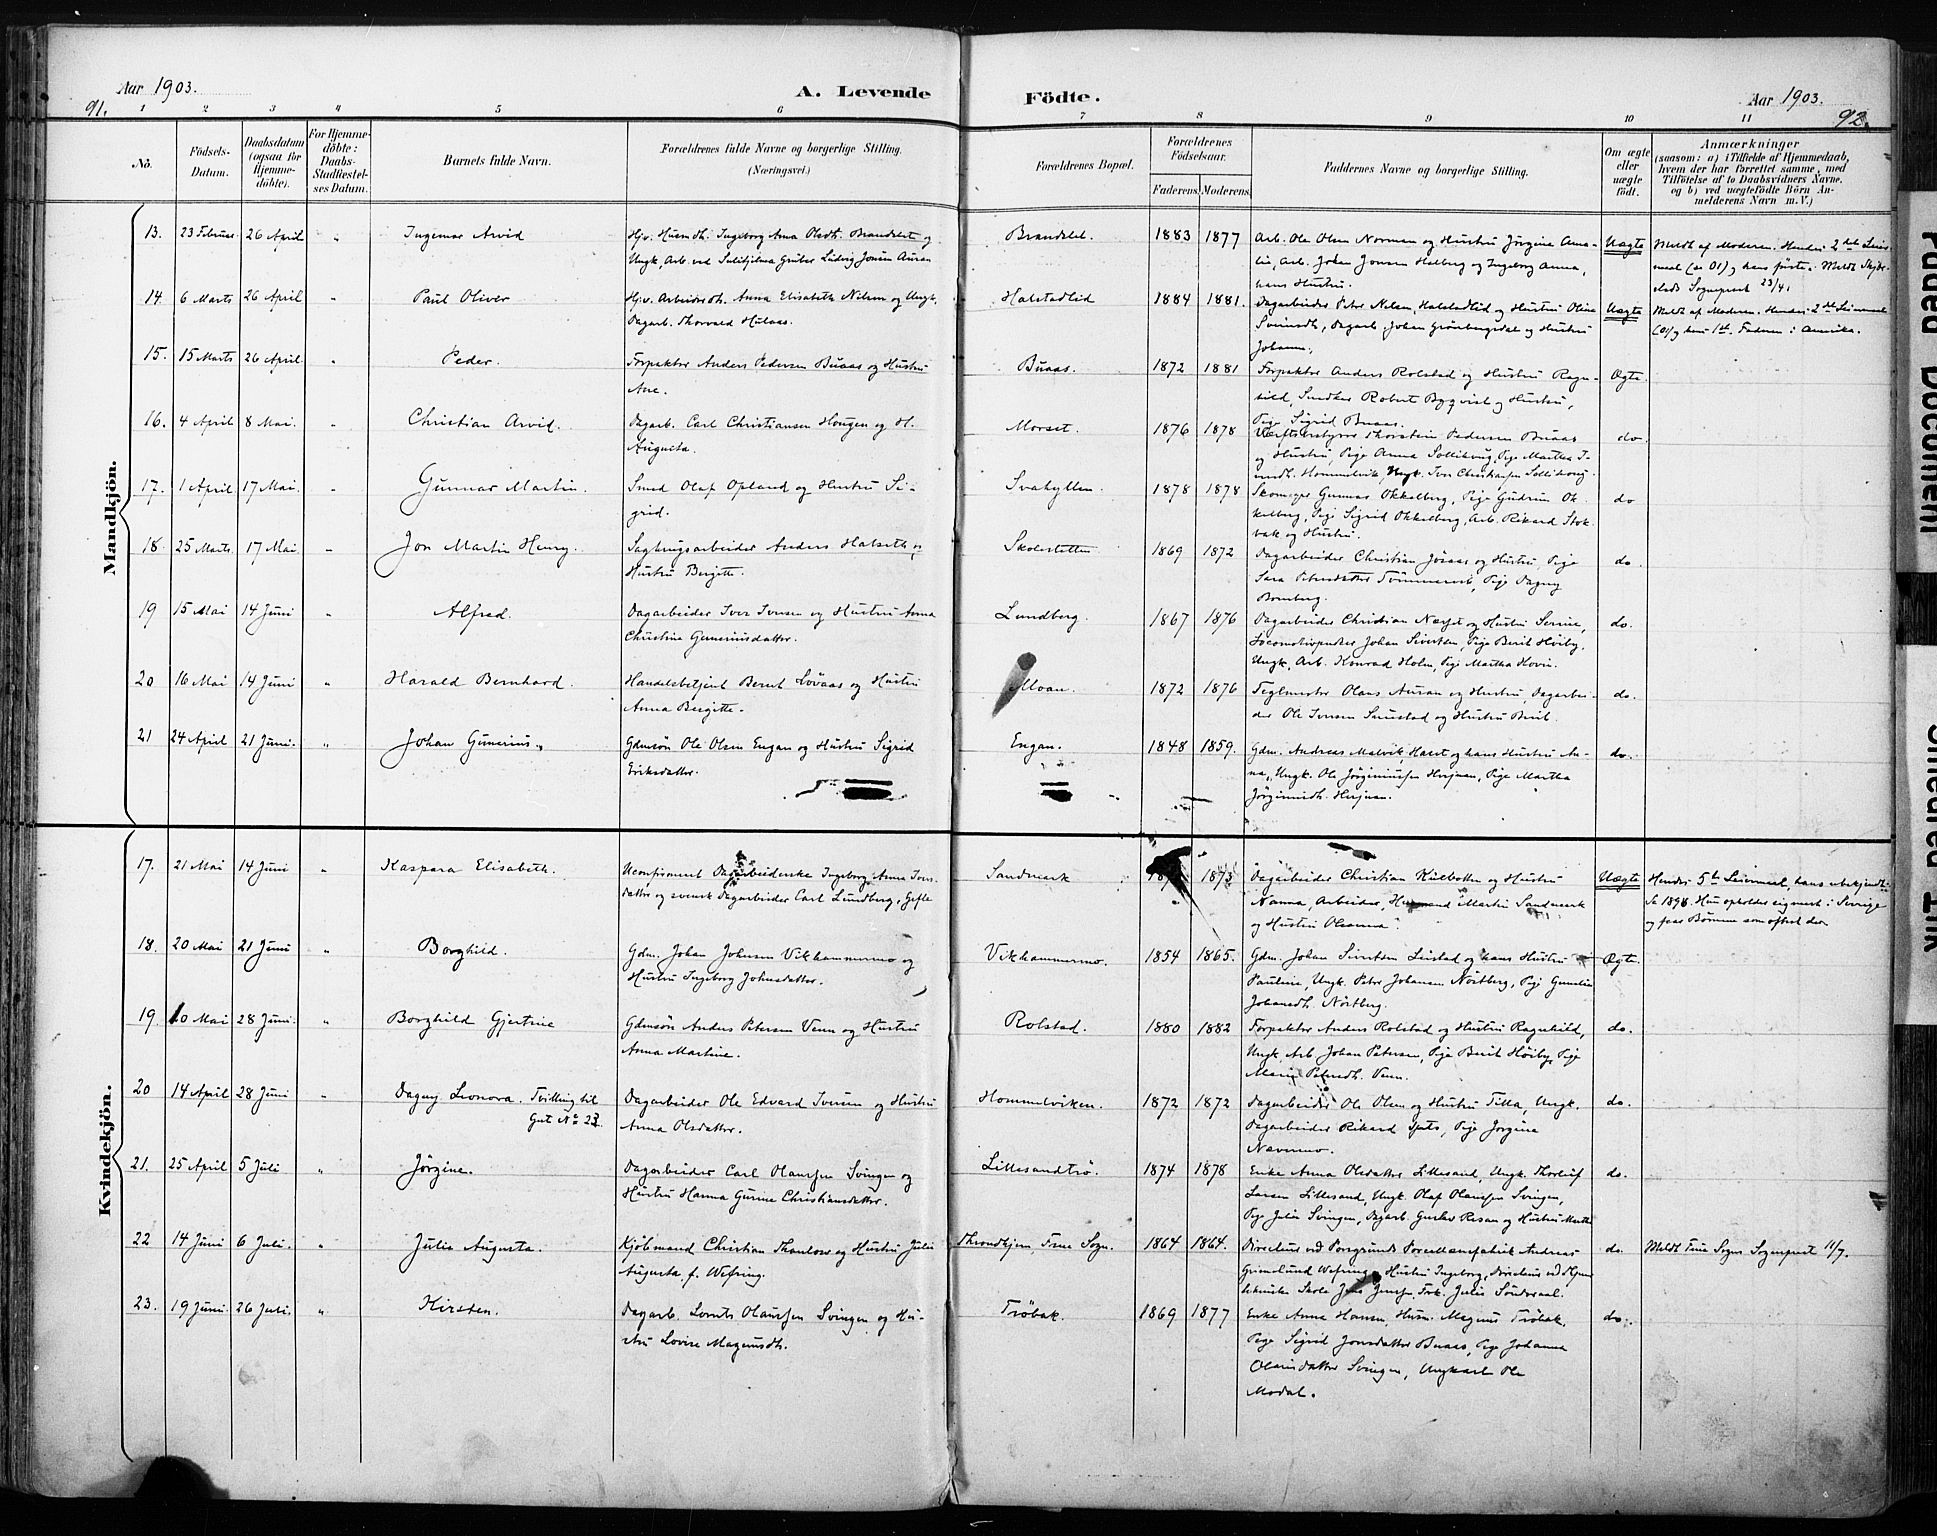 Aar 1903.
91.
A. Levende
Födte.
Aar 1903.
92.
1 2 3 4 5 6 7 8 9 10 11
No.
Födsels-Datum.
Daabsdatum (ogsaa for Hjemmedöbte).
For Hjemmedöbte: Daabs-Stadfæstelses Datum.
Barnets fulde Navn.
Forældrenes fulde Navne og borgerlige Stilling.
(Næringsvei.)
Forældrenes Bopæl.
Forældrenes Födselsaar.
Faderens. Moderens.
Faddernes Navne og borgerlige Stilling.
Om ægte eller uægte födt.
Anmærkninger
(saasom: a) i Tilfælde af Hjemmedaab,
hvem der har forrettet samme, med
Tilföielse af to Daabsvidners Navne,
og b) ved uægtefödte Börn An-
melderens Navn m. V.)
Mandkjön.
13. 23 Februar 26 April " Ingemar Arvid
Hjv. Husmdh. Ingeborg Anna Olsdh. Brandslet og
Ungk. Arb. ved Sulitjelma Gruber Ludvig Jonsen Auran
Brandslet. 1883 1877
Arb. Ole Olsen Norman og Hustru Jörgine Ama-
lia, Arb. Johan Jonsen Halberg og Ingeborg Anna,
hans Hustru.
Uægte
Meldt af Moderen. Hendes 2det Leier-
maal (as 01) og hans förste. Meldt
Sognepræst 23/4.
14. 6 Marts 26 April " Paul Oliver
Hjv. Arbeiderdh. Anna Elisabeth Nilsen og Ungk.
Dagarb. Thorvald Hulaas.
Halstadlid 1884 1881.
Dagarbeider Peter Nilsen Halstadlid og Hustru Olina
Dagarb. Johan Grönbergsdal og Hustru
Johanna,
Uægte
Meldt af Moderen. Hendes 2det Leiermaal
(01) og hans 1ste. Faderen i Amerika.
15. 15 Marts 26 April " Peder.
Forpakter Anders Pedersen Buaas og Hustru
Ane.
Buaas. 1872 1881
Forpakter Anders Rolstad og Hustru Ragn-
hild, Snedker Robert Bygqvist og Hustru,
Pige Sigrid Buaas.
Ægte
16. 4 April 8 Mai. " Christian Arvid.
Dagarb. Carl Christiansen Hougen og H.
Augusta.
Morset. 1876 1878
Værftsbestyrer Thorstein Pedersen Buaas
og Hustru, Pige Anna Sollikvug, Pige Martha I-
Hommelvik, Ungk. Iver Christiansen
do
17. 1 April 17 Mai. " Gunnar Martin.
Smed Olaf Opland og Hustru Si-
grid.
Svahyllen. 1878 1878
Skomager Gunnar Okkelberg, Pige Gudrun Ok-
kelberg, Pige Sigrid Okkelberg, Arb. Rikard Stok-
bak og Hustru.
do
18. 25 Marts 17 Mai " Jon Martin Henry.
Sagbrugsarbeider Anders Halseth og
Hustru Bergitte.
Skolestetten 1869 1872
Dagarbeider Christian Jösaas og Hustru, Pige
Sara Petersdatter Pige Dagny
Bromberg.
do.
19 15 Mai 14 Juni " Alfred.
Dagarbeider Iver Iversen og Hustru Anna
Christine Guneriusdatter.
Lundberg. 1867 1876
Dagarbeider Christian Næsset og Hustru Serine,
Locomotivpudser Johan Sivertsen, Pige Berit Höiby,
Ungk. Arb. Konrad Holm, Pige Martha Hovin.
do.
20 16 Mai 14 Juni " Harald Bernhard.
Handelsbetjent Bernt Lövaas og Hustru
Anna Bergitte.
Moan. 1872 1876
Teglmester Olaus Auran og Hustru, Dagarbei-
der Ole Iversen Smestad og Hustru Berit.
do.
21 24 April 21 Juni. " Johan Gunerius.
Gdmsön Ole Olsen Engan og Hustru Sigrid
Eriksdatter.
Engan. 1848 1859.
Gdm. Andreas Malvik, Halst og hans Hustru An-
na, Ungk. Ole Jörginiussen Herjuan, Pige Martha
Jörginiusdh. Herjuan.
do.
Kvindekjön.
17. 21 Mai 14 Juni " Kaspara Elisabeth.
Uconfirmeret Dagarbeiderske Ingeborg Anna Ivers-
datter og svensk Dagarbeider Carl Lundberg, Gefle
Sandmark 1873
Dagarbeider Christian Kulbotten og Hustru
Nanna, Arbeider, Martin Sandmark
og Hustru Oleanna.
Uægte
Hendes 5te Leiermaal, hans ubekjendt.
Sv 1898. Hun opholder sig mest i Sverige
og faar Börnene som oftest der
18. 20 Mai 21 Juni " Borghild.
Gdm. Johan Johnsen Vikhammermo og
Hustru Ingeborg Johnsdatter.
Vikhammermo. 1854 1865.
Gdm. Johan Sivertsen Leistad og hans Hustru
Pauline, Ungk. Peter Johansen Nöstberg, Pige Gunelia
Johansdh. Nöstberg.
Ægte.
19. 10 Mai 28 Juni. " Borghild Gjertine
Gdmsön Anders Petersen Venn og Hustru
Anna Martine.
Rolstad. 1880 1882
Forpakter Anders Rolstad og Hustru Ragnhild,
Ungk. Arb. Johan Petersen, Pige Berit Höiby, Pige
Marie Petersdh. Venn.
do.
20 14 April 28 Juni " Dagny Leonora. Tvilling til
Gut No 23.
Dagarbeider Ole Edvard Iversen og Hustru
Anna Olsdatter.
Hommelviken. 1872 1872
Dagarbeider Ole Olsen og Hustru Tilla, Ungk.
Dagarbeider Rikard Spets, Pige Jörgine
Navermo.
do.
21. 25 April 5 Juli " Jörgine.
Dagarbeider Carl Olaussen Svingen og
Hustru Hanna Gurine Christiansdatter.
Lillesandtrö. 1874 1878
Enke Anna Olsdatter Lillesand, Ungk. Thorleif
Larsen Lillesand, Ungk. Olaf Olaussen Svingen,
Pige Julie Svingen, Dagarb. Gustav Risan og Hustru Martha
do.
22 14 Juni 6 Juli. " Julie Augusta.
Kjöbmand Christian Thaulow og Hustru Julie
Augusta f. Wefring.
Throndhjem, Frue Sogn. 1864 1864.
Directeur ved Porsgrunds Porcellænsfabrik Andreas
Grimelund Wefring, Hustru Ingeborg, Directeur ved Thjems
tekniske Skole Jens Jensen, Frk. Julie Söndersaal.
do.
Meldt Frue Sogns Sognepræst 11/7.
23. 19 Juni. 26 Juli. " Kirsten.
Dagarb. Lornts Olaussen Svingen og Hu-
stru Lovise Magnusdh.
Tröbak. 1869 1877
Enke Anna Hansen, Husm. Magnus Tröbak,
Pige Sigrid Jonsdatter Buaas, Pige Johanna
Olausdatter Svingen, Ungkarl Ole
Modal.
do.
Faded Document
Smeared Ink